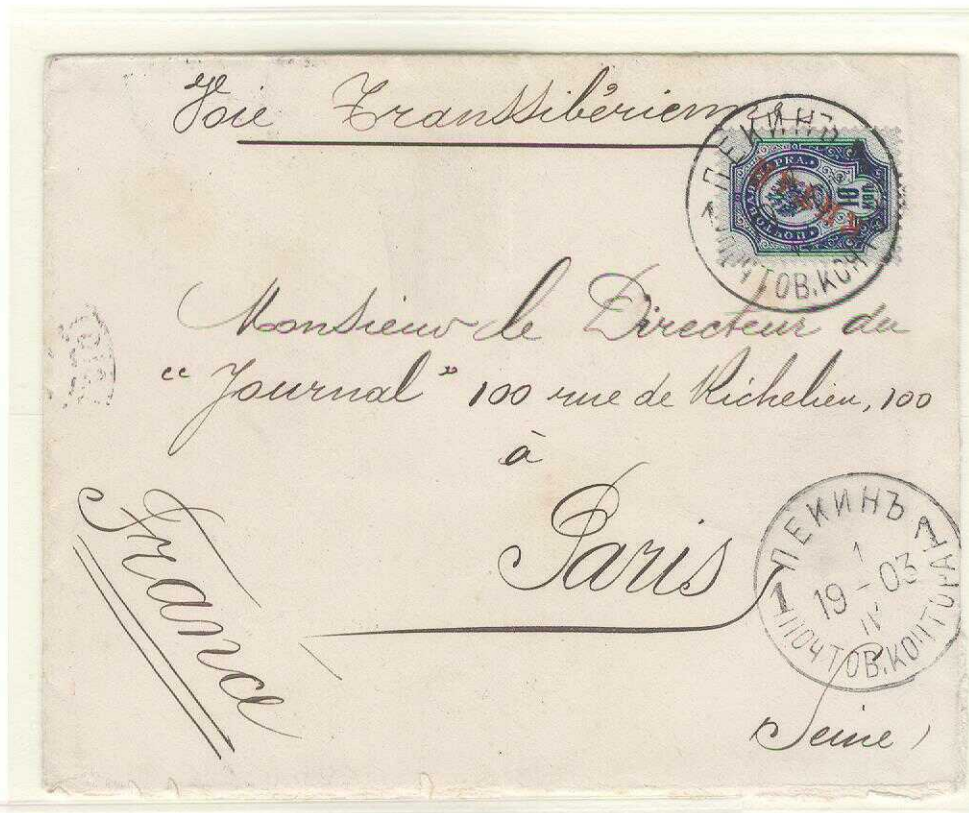 Voie Transsibérienne
ПЕКИНЪ
ПОЧТОВ. КОНТ
МАРКА
10 КОП
КИТАЙ
Monsieur le Directeur du
"Journal" 100 rue de Richelieu, 100
à
Paris
France
ПЕКИНЪ
1 1
1
19 - 03
IV
ПОЧТОВ. КОНТОРА
Seine)